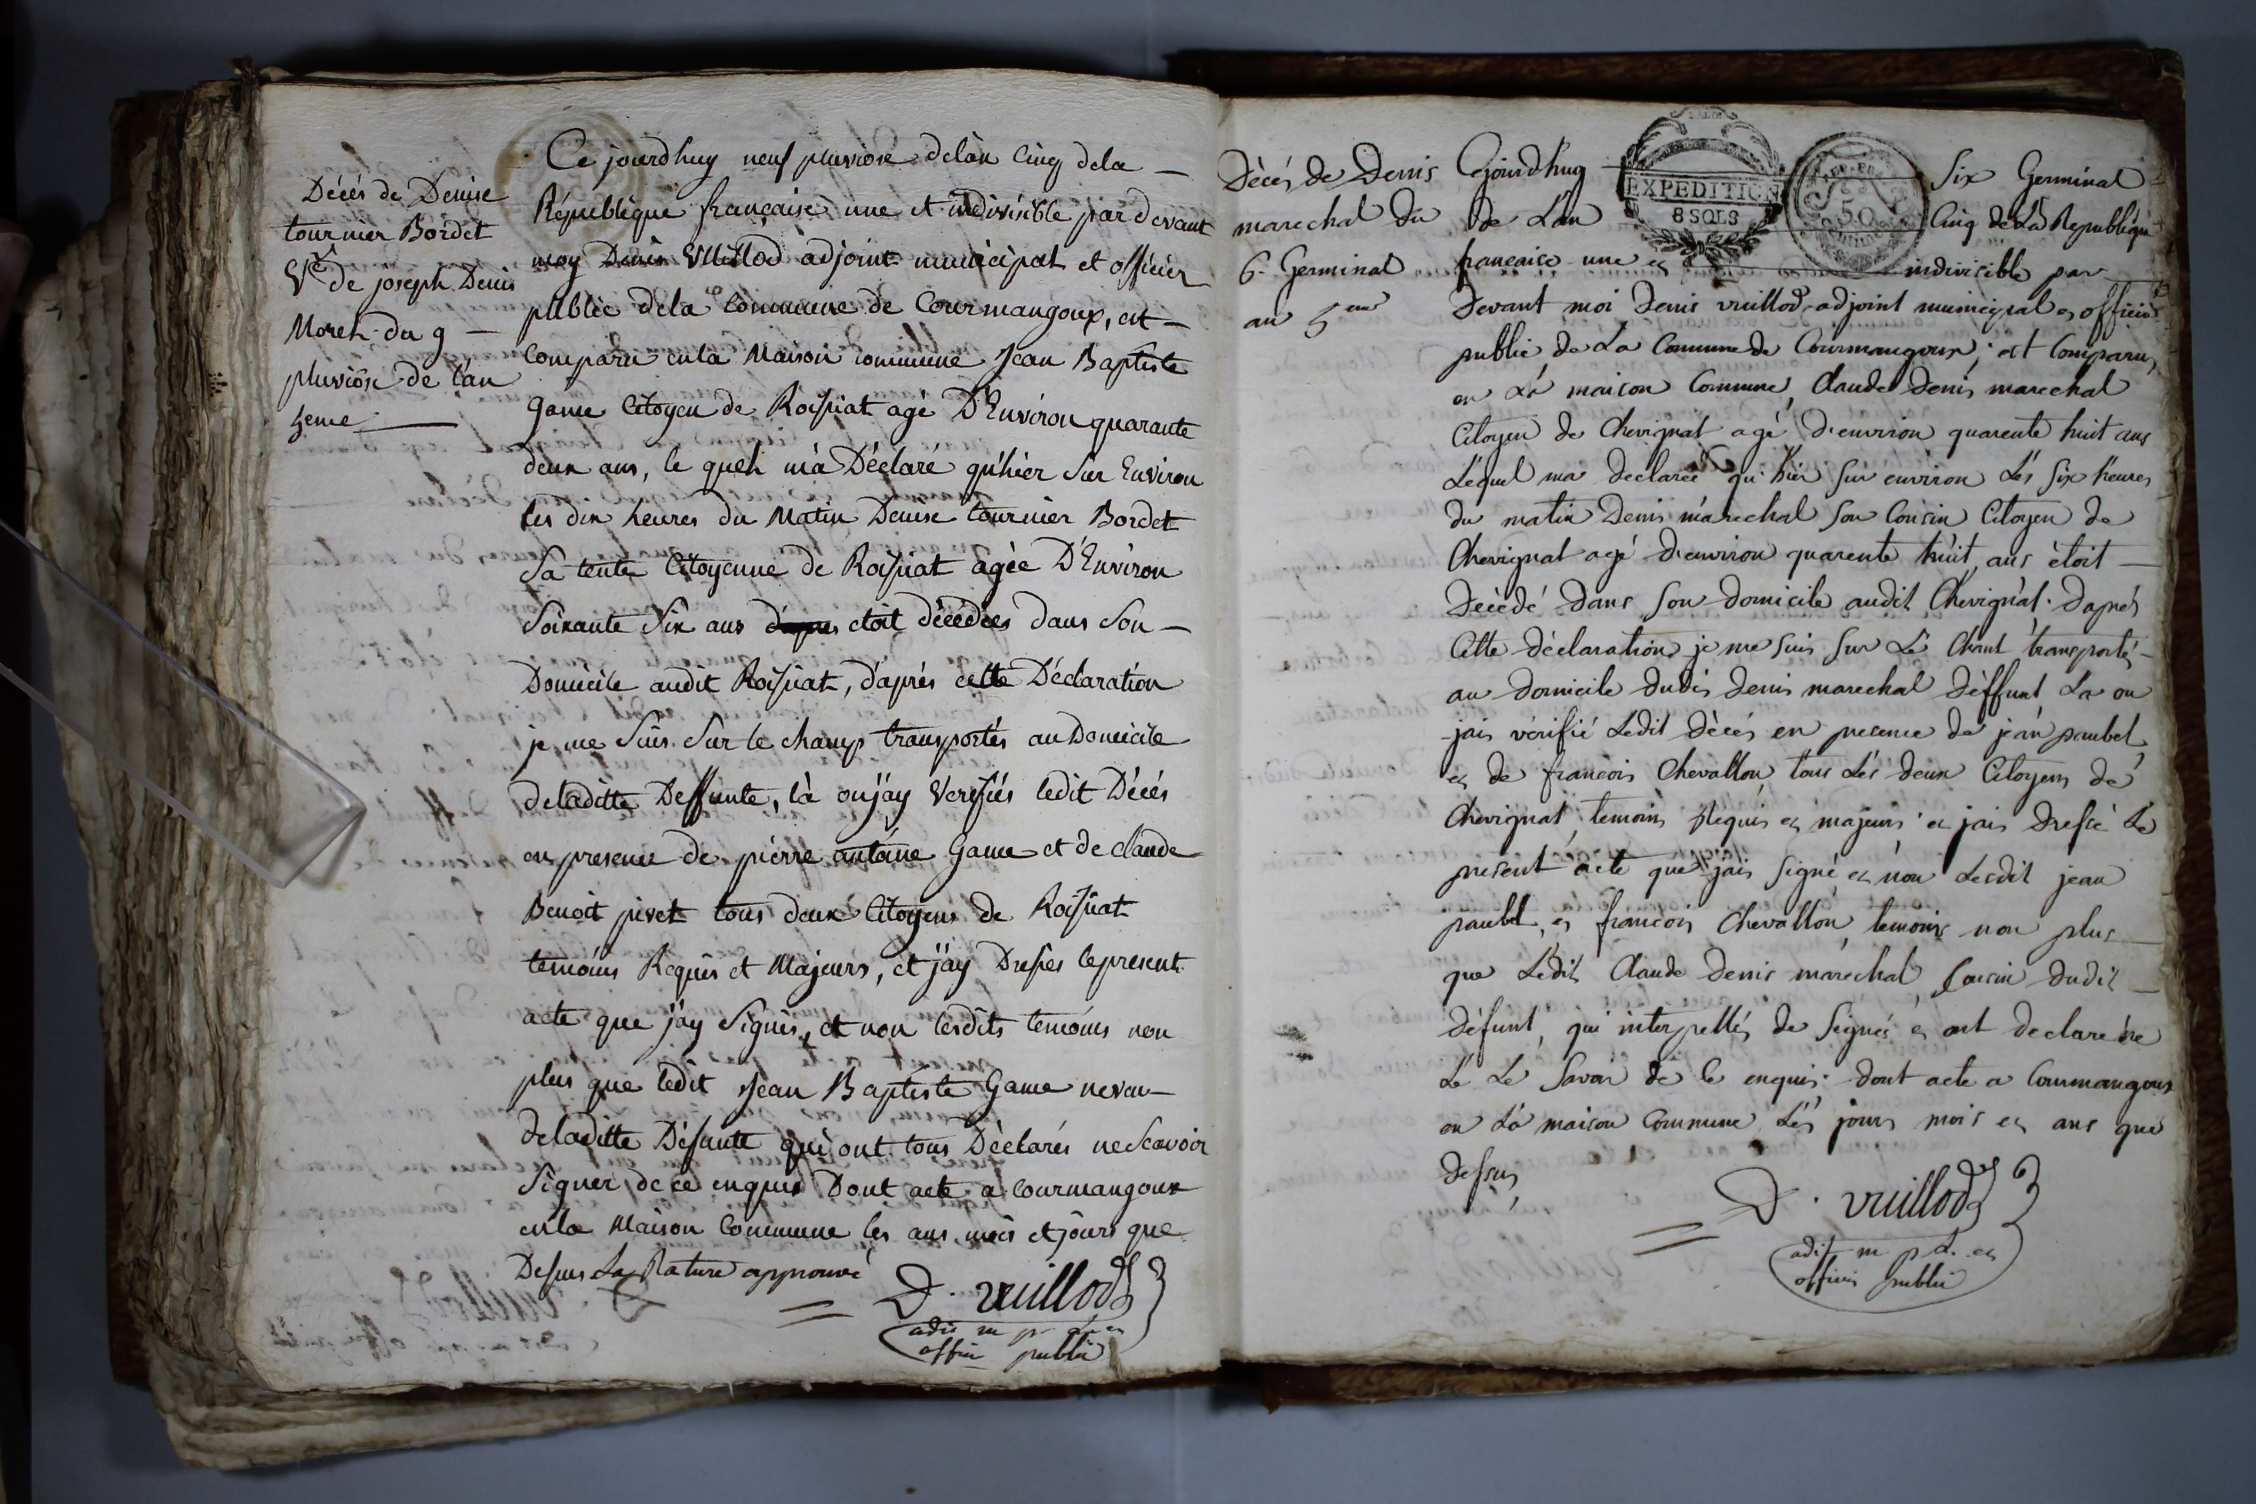 Décés de Denise
tournier Bordet
Ve de joseph Denis
Moreh du 9 —
pluviôse de l'an
5eme —
Ce jourdhuy neuf pluviose delan Cinq dela —
République française une et indivisible par devant
moy Denis Vuillod adjoint municipal et officier
public dela Commune de Courmangoux, est —
Comparu en la Maison commune Jean Baptiste
Game Citoyen de Roissiat agé D'Environ quarante
deux ans, le quel m'a Déclaré qu'hier Sur Environ
les dix heures du Matin Denise tournier Bordet
Sa tente Citoyenne de Roissiat agée D'Environ
Soixante Six ans etoit décédées dans Son —
Domicile audit Roissiat, d'aprés cette Déclaration
je me Suis Sur le champ transportés au Domicile
deladitte Deffunte, là ou j'ay Verifiés ledit Décés
en presence de pierre antoine Game et de claude
Benoit pivet tous deux Citoyens de Roissiat
temoins Requis et Majeurs, et j'ay Dressés lepresent
acte que j'ay Signés, et non lesdits temoins non
plus que ledit Jean Baptiste Game neveu —
deladitte Défunte qui ont tous Déclarés ne Scavoir
Signer de ce enquis Dont acte a Courmangoux
en la Maison Commune les ans mois et jours que
Dessus La Rature approuvé
D. vuillod
adj m p al et
officier public
Décés de Denis
marechal du
6 Germinal
au 5eme
EXPEDITION
8 SOLS
50
Cejourdhuy Six Germinal
de L'an Cinq de La Republique
francaise une et indivisible par
Devant moi Denis vuillod adjoint municipal et officier
public de La Commune de Courmangoux, est Comparu
en La maison Commune, Claude Denis marechal
Citoyen de Chevignat agé d'environ quarente huit ans
Lequel ma declareé qu'hier Sur environ Les Six heures
du matin Denis marechal Son Cousin Citoyen de
Chevignat agé d'environ quarente huit ans étoit —
Décédé dans Son domicile audit Chevignat. daprés
Cette déclaration je me Suis Sur Le Chant transporté —
au domicile dudis Denis marechal déffunt La ou
jais vérifié Ledit décés en presence de jean paubel
et de francois Chevallon tous Les deux Citoyens de
Chevignat temoins Requis et majeurs et jais dressé Le
present acte que jais Signé et non Lesdit jean
paubel, et francois Chevallon temoins non plus —
que Ledit Claude Denis marechal Cousin dudit —
défunt, qui interpellés de Signés et ont declaré ne
Le Le Savoir de Ce enquis. dont acte a Courmangoux
en La maison Commune Les jours mois et ans que
dessus
D. vuillod
adj m p al et
officier public